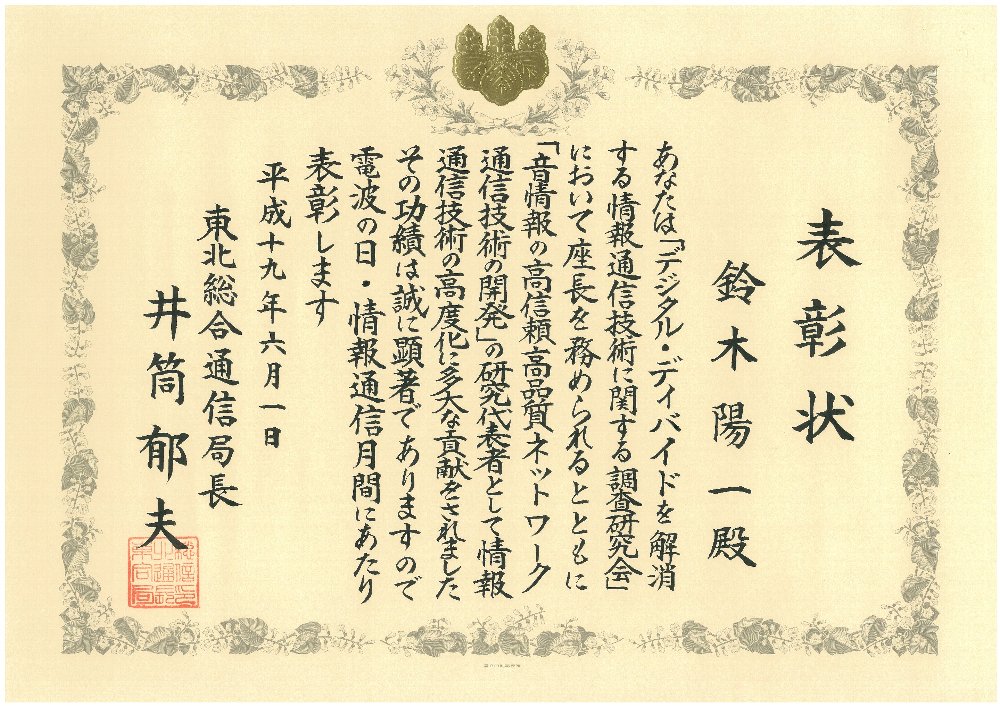 表彰状
鈴木陽一殿
あなたは「デジタル・ディバイドを解消
する情報通信技術に関する調査研究会」
において座長を務められるとともに
「音情報の高信頼高品質ネットワーク
通信技術の開発」の研究代表者として情報
通信技術の高度化に多大な貢献をされました
その功績は誠に顕著でありますので
電波の日・情報通信月間にあたり
表彰します
平成十九年六月一日
東北総合通信局長
井筒郁夫